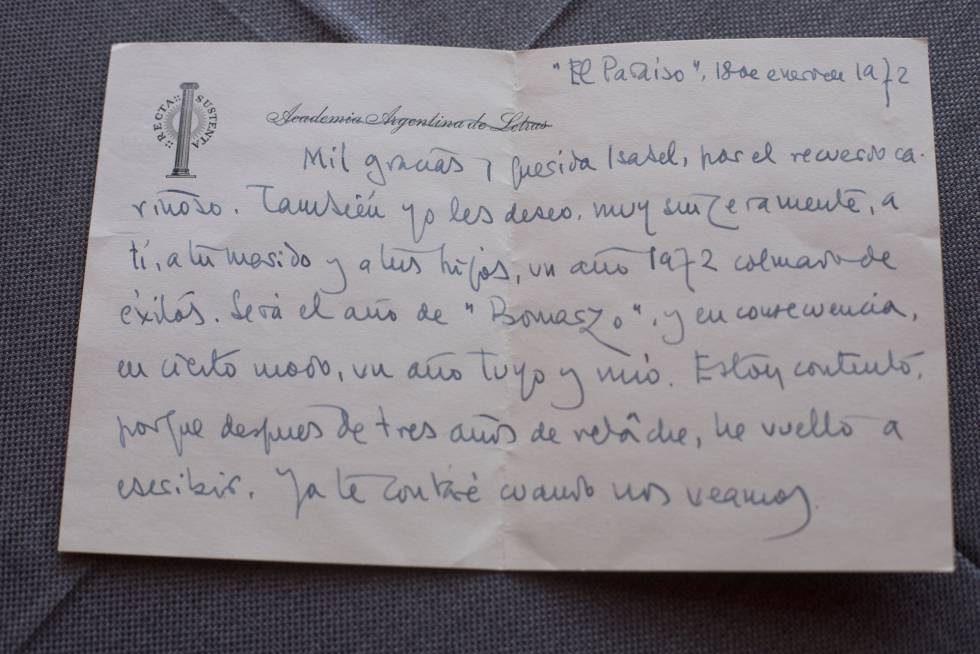 "El Paraíso", 18 de enero de 1972
RECTA SUSTENTA
Academia Argentina de Letras
Mil gracias, querida Isabel, por el recuerdo ca-
riñoso. También yo les deseo, muy sinzeramente, a
tí, a tu marido y a tus hijos, un año 1972 colmado de
éxitos. Será el año de "Bomarzo", y en consecuencia,
en cierto modo, un año tuyo y mío. Estoy contento,
porque después de tres años de relâche, he vuelto a
escribir. Ya te contaré cuando nos veamos.